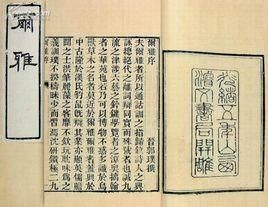 爾雅
濬文書局開雕
爾雅序 晉郭璞撰
夫爾雅者所以通詁訓之指歸敘詩人之興
詠總絕代之離詞辯同實而殊號者也誠九
流之津涉六藝之鈐鍵學覽者之潭奧摛翰
者之華苑也若乃可以博物不惑多識於鳥
獸草木之名者莫近於爾雅爾雅者蓋興於
中古隆於漢氏豹鼠既辯其業亦顯英儒贍
聞之士洪筆麗藻之客靡不欽玩耽味為之
義訓璞不揆檮昧少而習焉沈研鑽極二九